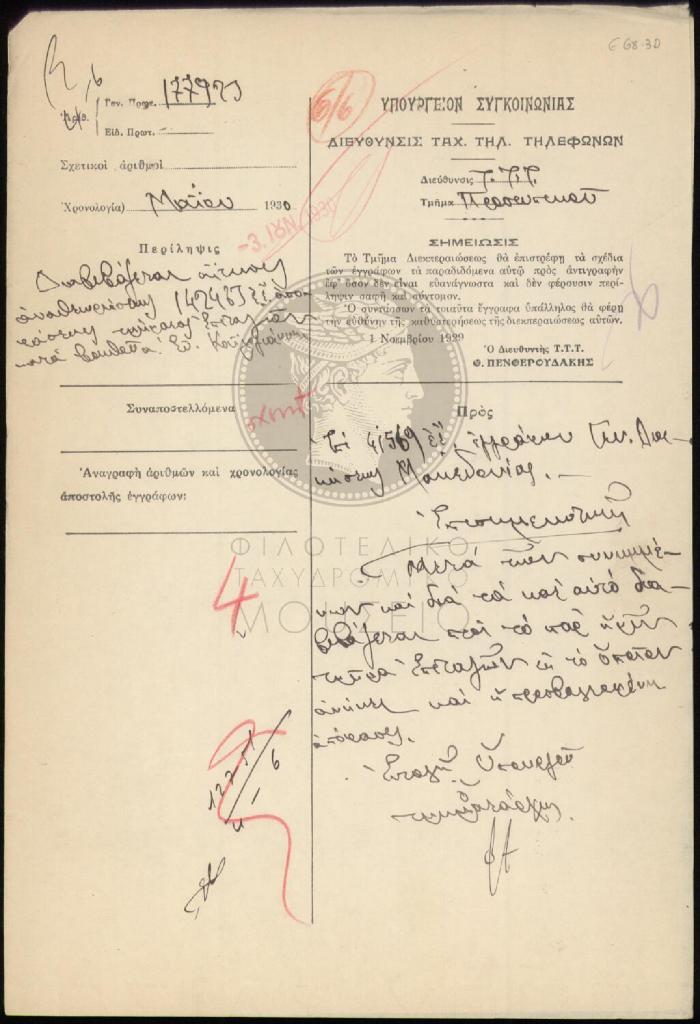 Ε 68.30
Ἀριθ. Γεν. Πρωτ. 177923
Εἰδ. Πρωτ.
Σχετικοὶ ἀριθμοὶ
Χρονολογία) Μαΐου 1930
Περίληψις
Διαβιβάζεται αἴτησις
ἀναθεωρήσεως
κατὰ
Συναποστελλόμενα
Ἀναγραφὴ ἀριθμῶν καὶ χρονολογίας
ἀποστολῆς ἐγγράφων:
4
6/6
-3. ΙΟΥΝ 1930
ΥΠΟΥΡΓΕΙΟΝ ΣΥΓΚΟΙΝΩΝΙΑΣ
ΔΙΕΥΘΥΝΣΙΣ ΤΑΧ. ΤΗΛ. ΤΗΛΕΦΩΝΩΝ
Διεύθυνσις Τ.Τ.Τ.
Τμῆμα Προσωπικοῦ
ΣΗΜΕΙΩΣΙΣ
Τὸ Τμῆμα Διεκπεραιώσεως θὰ ἐπιστρέφῃ τὰ σχέδια
τῶν ἐγγράφων τὰ παραδιδόμενα αὐτῷ πρὸς ἀντιγραφὴν
ἐφ' ὅσον δὲν εἶναι εὐανάγνωστα καὶ δὲν φέρουσιν περί-
ληψιν σαφῆ καὶ σύντομον.
Ὁ συντάσσων τὰ τοιαῦτα ἔγγραφα ὑπάλληλος θὰ φέρῃ
τὴν εὐθύνην τῆς καθυστερήσεως τῆς διεκπεραιώσεως αὐτῶν.
1 Νοεμβρίου 1929
Ὁ Διευθυντὴς Τ.Τ.Τ.
Θ. ΠΕΝΘΕΡΟΥΔΑΚΗΣ
Πρὸς
ἐγγράφου Γεν. Διοι-
κήσεως Μακεδονίας.
Μετὰ τῶν συνημμέ-
νων καὶ διὰ τὰ κατ' αὐτὸ δια-
βιβάζεται πρὸς τὸ παρ' ἡμῖν
τμῆμα Ἐπιταγῶν εἰς τὸ ὁποῖον
ἀνήκει καὶ ἡ προσβαλλομένη
ἀπόφασις.
Ἐντολῇ Ὑπουργοῦ
Τμηματάρχης
ΦΙΛΟΤΕΛΙΚΟ
ΤΑΧΥΔΡΟΜΙΚΟ
ΜΟΥΣΕΙΟ